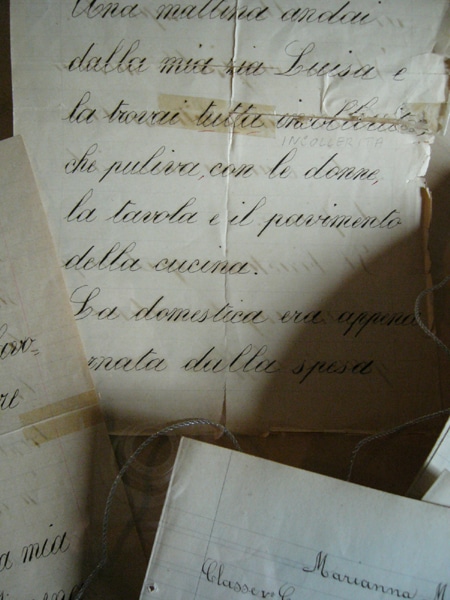 Una mattina andai
dalla mia zia Luisa e
la trovai tutta
INCOLLERITA
che puliva, con le donne,
la tavola e il pavimento
della cucina.
La domestica era appena
rnata dalla spesa
ovo=
re
a mia
Marianna M
Classe